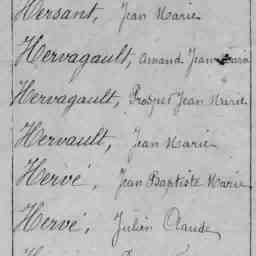 Hersant, Jean Marie
Hervagault, Amand Jean Marie
Hervagault, Prosper Jean Marie
Hervault, Jean Marie
Hervé, Jean Baptiste Marie
Hervé, Julien Claude